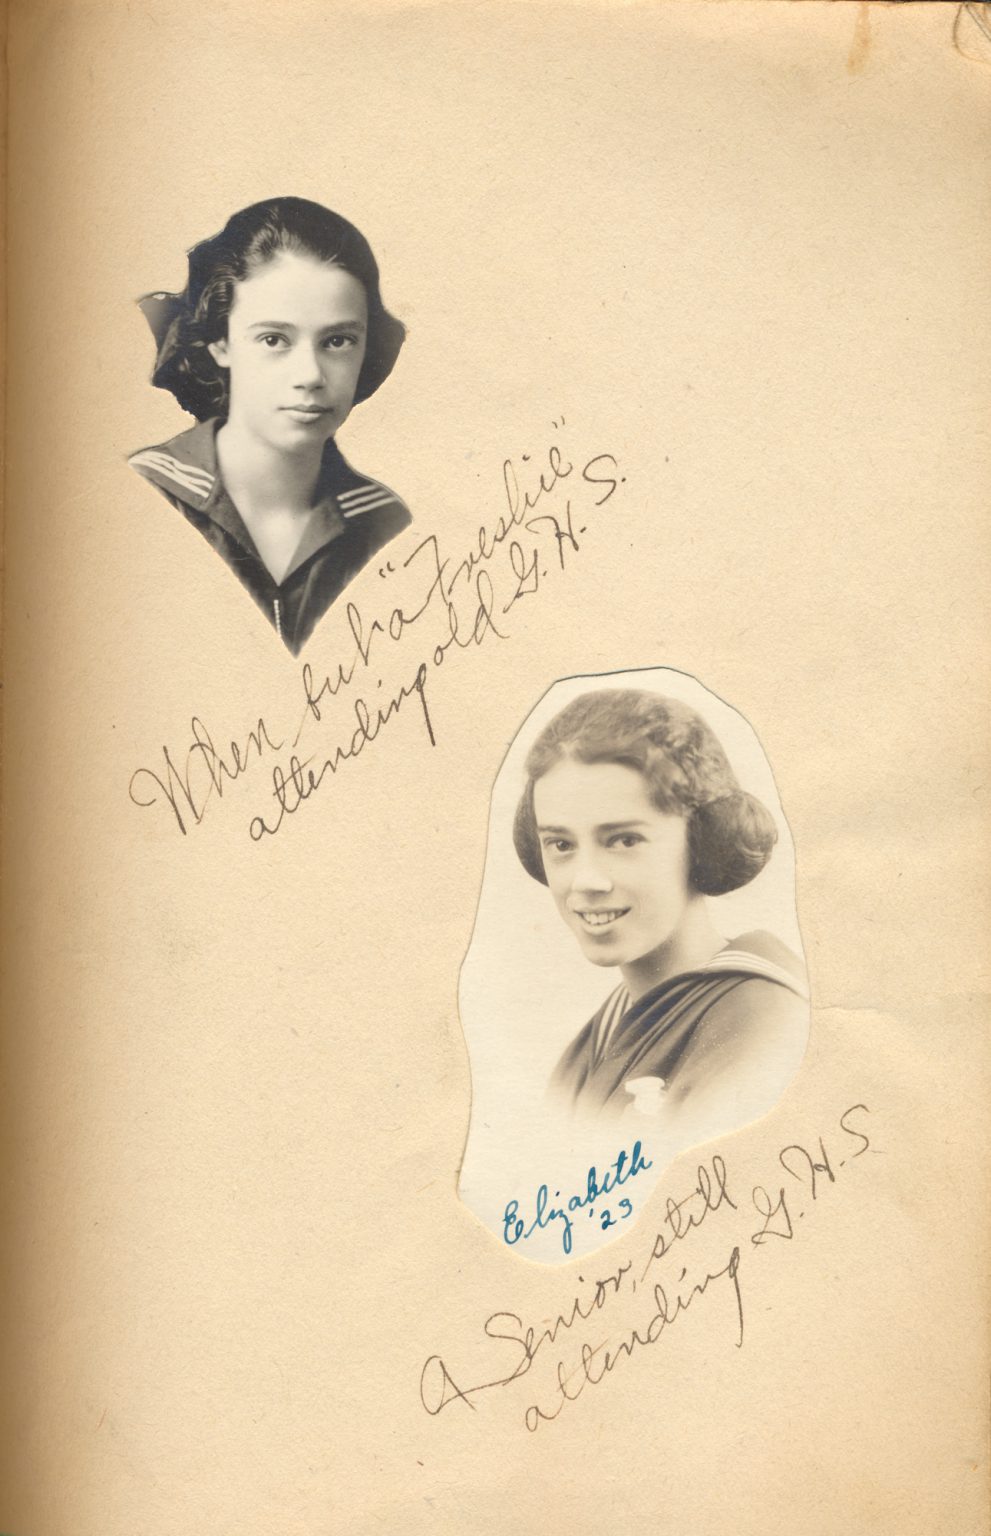 When but a "Freshie"
attending old G.H.S.
Elizabeth
'23
A Senior, still
attending G.H.S